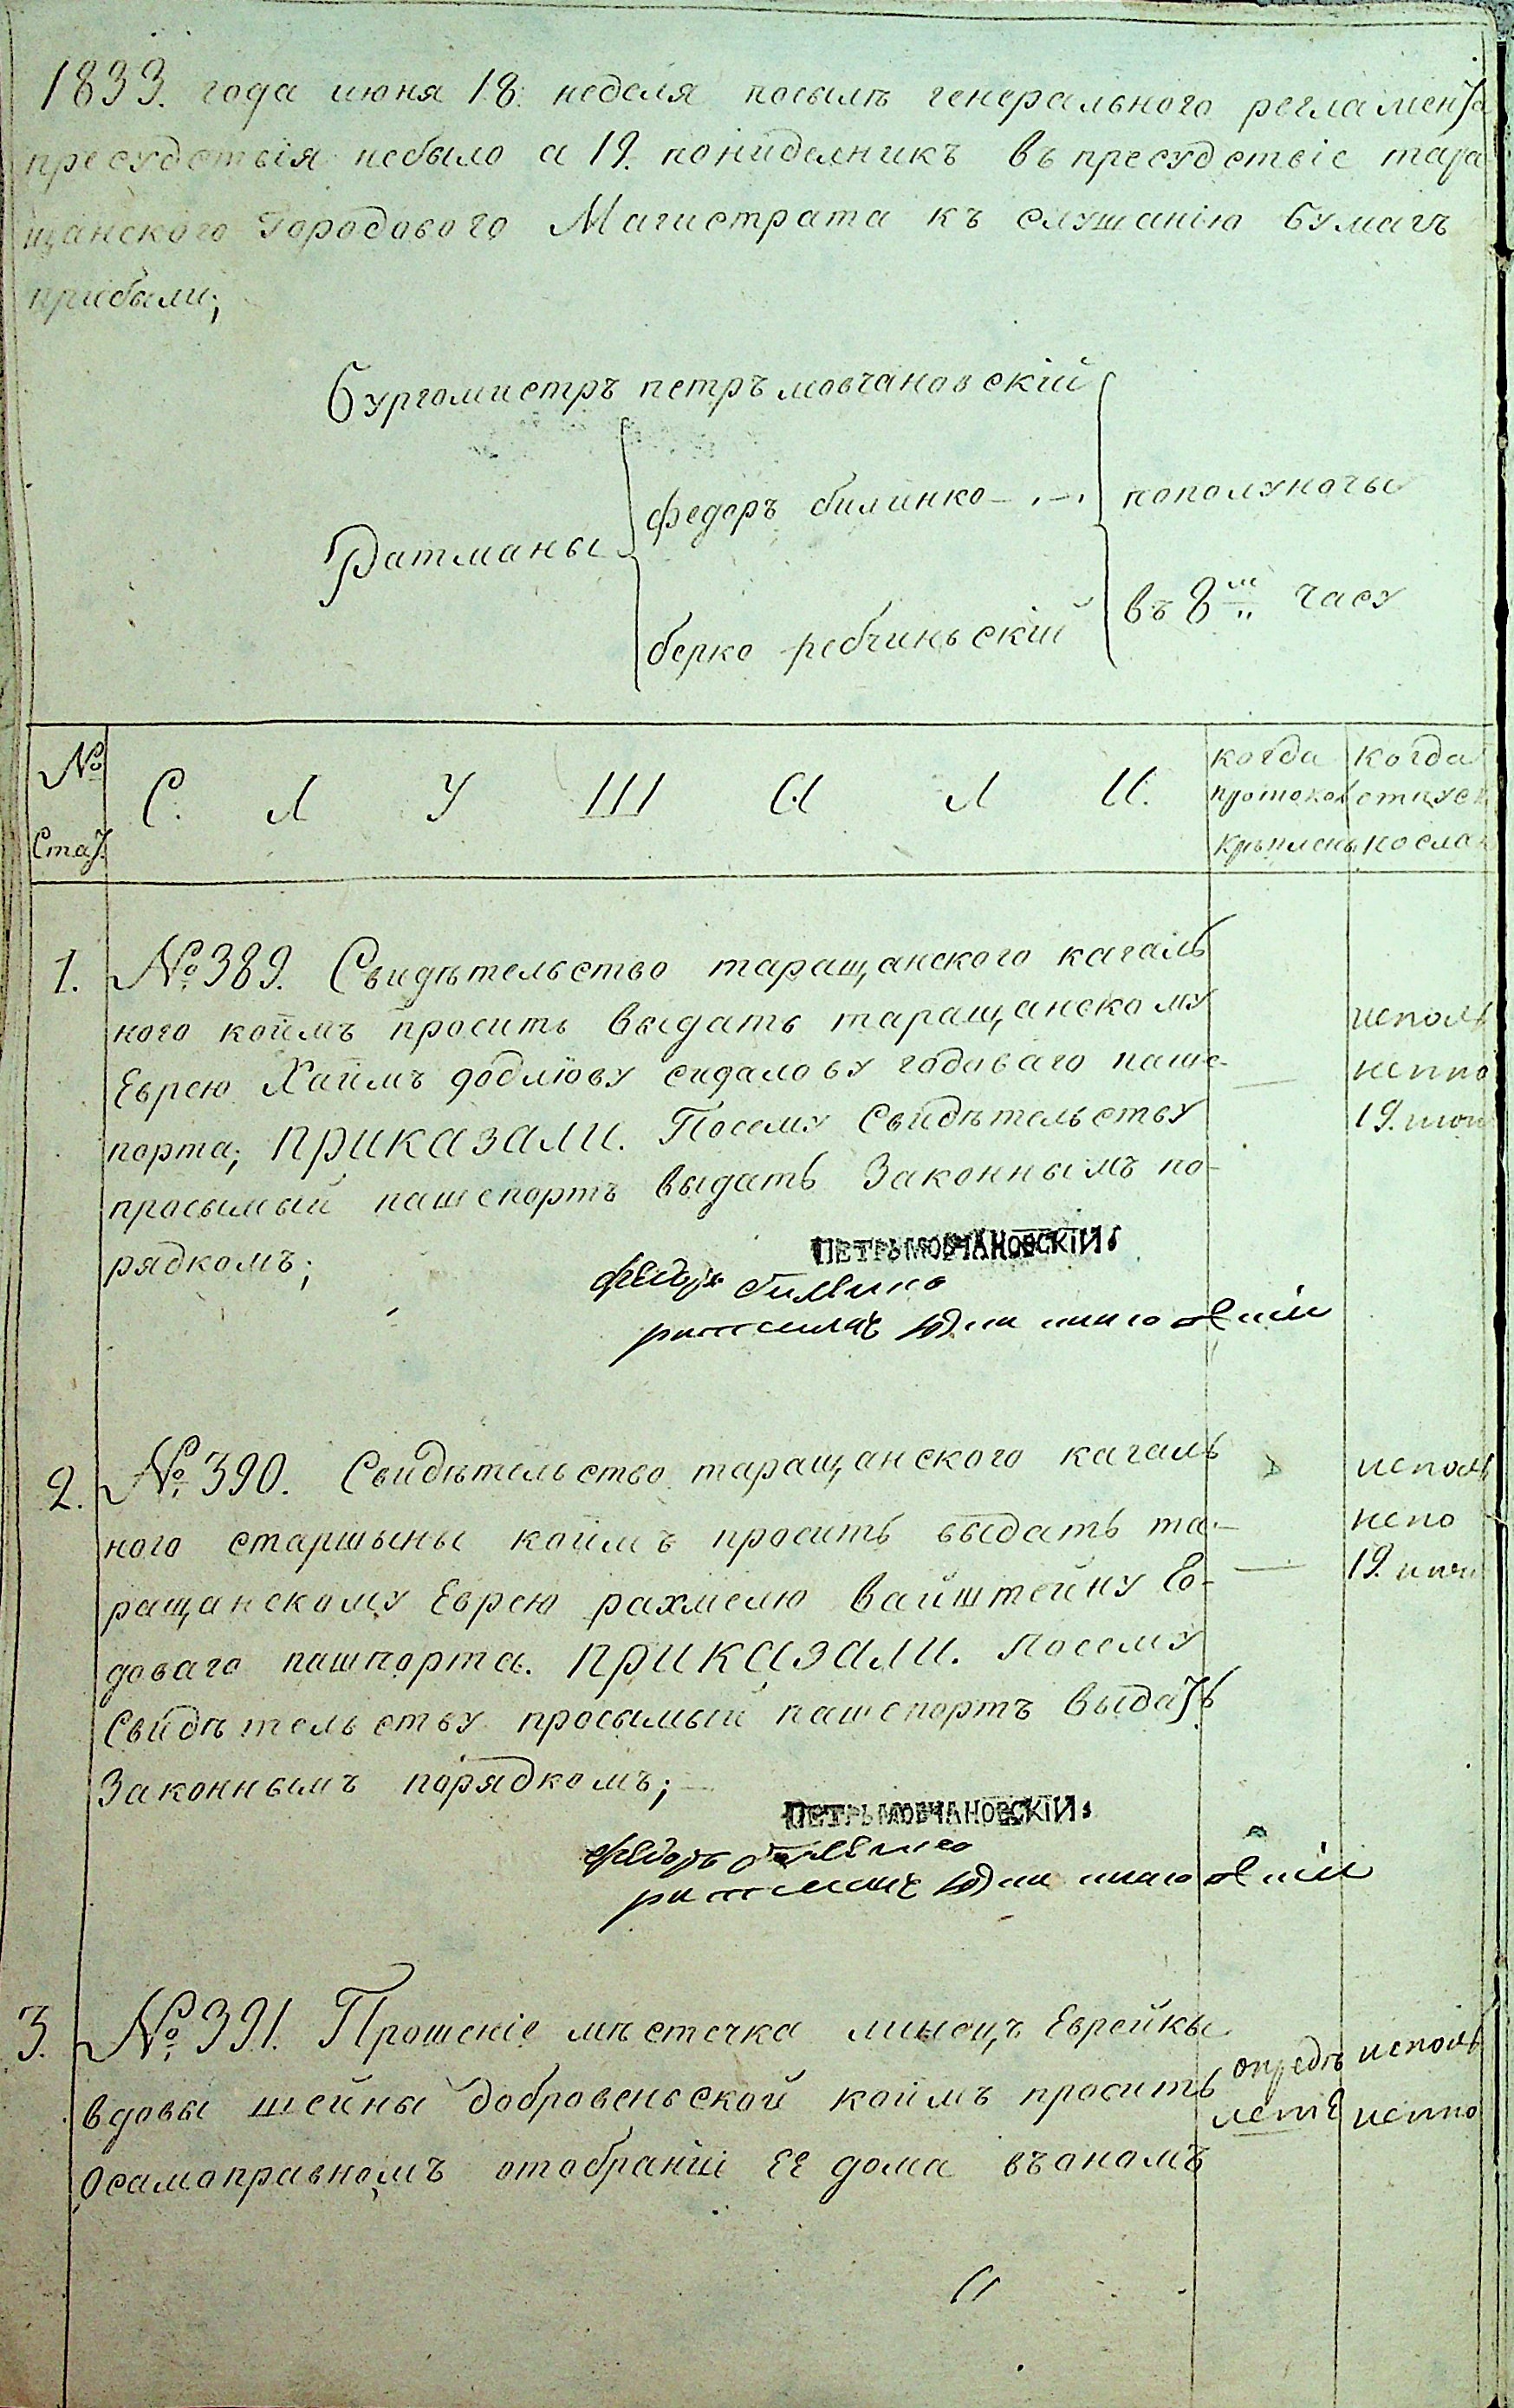 1833. года июня 18. неделя посылѣ генерального регламента
пресудствія небыло а 19. понидельникъ въ пресудствіе тара
щанского Городового Магистрата къ слушанію бумагъ
прибыли;
Бургомистръ петръ мовчановскій
федоръ билинко пополуночы
Ратманы
берко ребчиньскій въ 8м часу
№ Стат.
С. Л У Ш А Л И.
когда протокол крѣпленъ
когда отпуск послан
1. №389. Свидѣтельство таращанского кагаль
ного коимъ просить выдать таращанскому
Еврею Хаимъ сидалову годоваго паше-
порта; приказали. Посему Свидѣтельству
просымый пашепортъ выдать Законнымъ по-
рядкомъ;
исполь
нено
19. июн
ПЕТРЪ МОВЧАНОВСКІЙ.
федоръ билинко
ратманъ
2. №390. Свидѣтельство таращанского кагаль
ного старшыны коимъ просить выдать та-
ращанскому Еврею рахмелю вайштейну Го-
доваго пашпорта. приказали. Посему
Свидѣтельству просымый пашепортъ выдать
Законнымъ порядкомъ;
исполь
нено
19. июн
ПЕТРЪ МОВЧАНОВСКІЙ.
федоръ билинко
ратманъ
3. №391. Прошеніе мѣстечка Еврейкы
вдовы шейны добровеньской коимъ просить
Осамоправномъ отобраніи ее дома въономъ
исполь